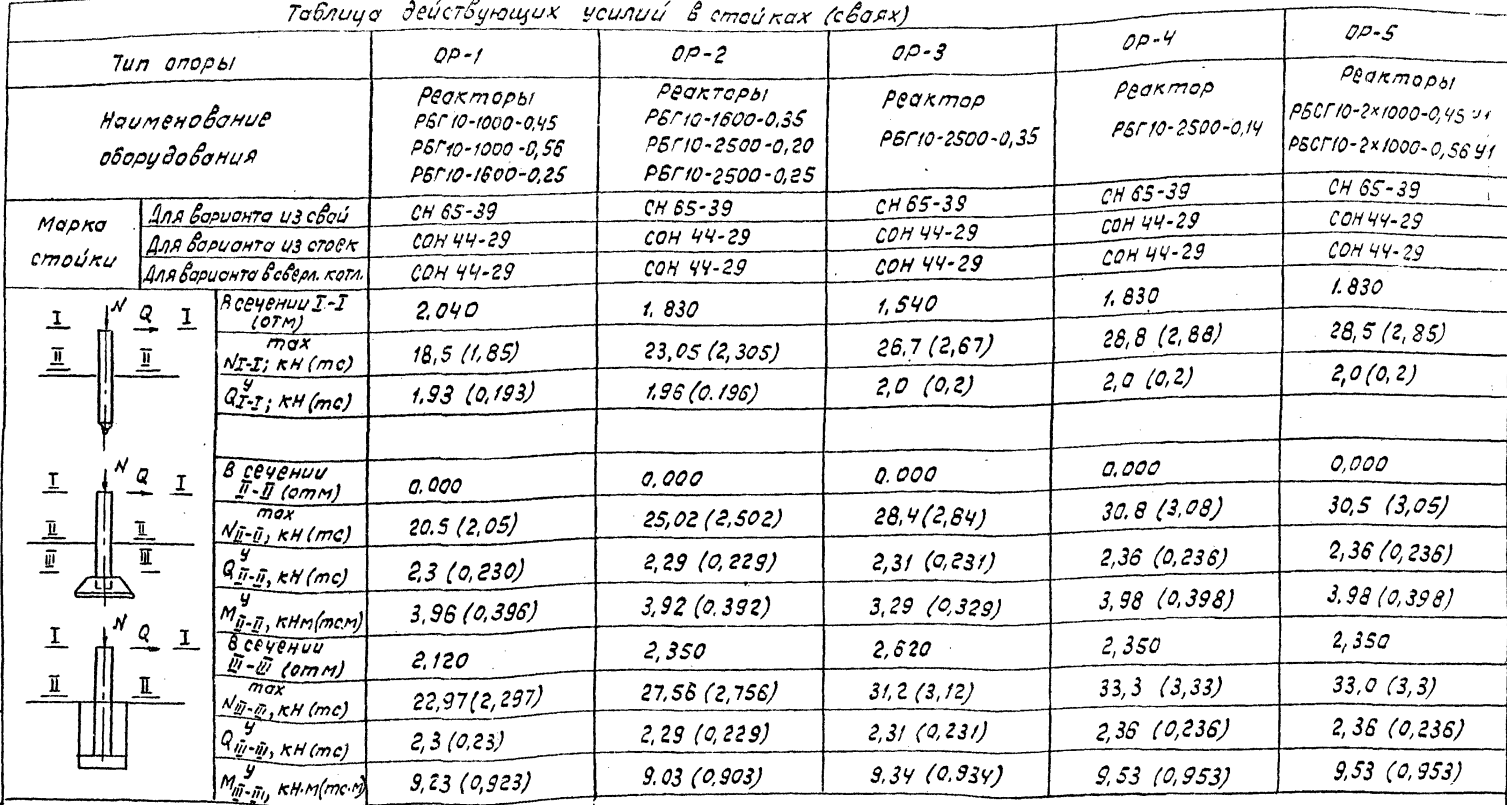 Таблица действующих усилий в стойках (сваях)
Тип опоры ОР-1 ОР-2 ОР-3 ОР-4 ОР-5
Наименование оборудования
Реакторы
РБГ10-1000-0,45
РБГ10-1000-0,56
РБГ10-1600-0,25
Реакторы
РБГ10-1600-0,35
РБГ10-2500-0,20
РБГ10-2500-0,25
Реактор
РБГ10-2500-0,35
Реактор
РБГ10-2500-0,14
Реакторы
РБСГ10-2×1000-0,45 У1
РБСГ10-2×1000-0,56 У1
Марка стойки
Для варианта из свай СН 65-39 СН 65-39 СН 65-39 СН 65-39 СН 65-39
Для варианта из стоек СОН 44-29 СОН 44-29 СОН 44-29 СОН 44-29 СОН 44-29
Для варианта в сверл. котл. СОН 44-29 СОН 44-29 СОН 44-29 СОН 44-29 СОН 44-29
I N Q I
II II
В сечении I-I (отм) 2,040 1.830 1,540 1.830 1.830
max N I-I; кН (тс) 18,5 (1,85) 23,05 (2,305) 26,7 (2,67) 28,8 (2,88) 28,5 (2,85)
Q у I-I; кН (тс) 1,93 (0,193) 1,96 (0.196) 2,0 (0,2) 2,0 (0,2) 2,0 (0,2)
I N Q I
II II
III III
В сечении II-II (отм) 0.000 0,000 0.000 0,000 0,000
max N II-II, кН (тс) 20.5 (2,05) 25,02 (2,502) 28,4 (2,84) 30.8 (3,08) 30,5 (3,05)
Q у II-II, кН (тс) 2,3 (0,230) 2,29 (0,229) 2,31 (0,231) 2,36 (0,236) 2,36 (0,236)
М у II-II, кНм (тс.м) 3,96 (0,396) 3,92 (0.392) 3,29 (0.329) 3,98 (0,398) 3.98 (0,398)
I N Q I
II II
В сечении III-III (отм) 2.120 2,350 2,620 2,350 2,350
max N III-III, кН (тс) 22,97 (2,297) 27.56 (2,756) 31,2 (3,12) 33,3 (3,33) 33,0 (3,3)
Q у III-III, кН (тс) 2,3 (0,23) 2,29 (0,229) 2,31 (0,231) 2,36 (0,236) 2,36 (0,236)
М у III-III, кН.м (тс.м) 9,23 (0,923) 9.03 (0,903) 9,34 (0.934) 9,53 (0,953) 9,53 (0,953)